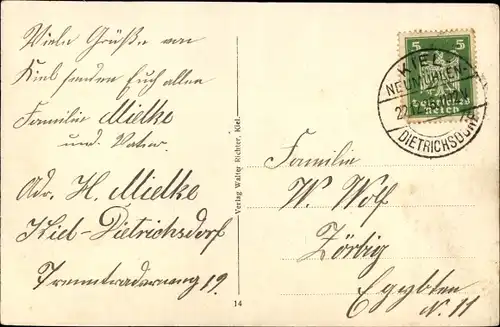 Viele Grüße von
Kiel senden Euch allen
Familie Mielke
und Vater.
Adr. H. Mielke
Kiel-Dietrichsdorf
19.
Verlag Walter Richter, Kiel.
14
5 5
KIEL
NEUMÜHLEN
22.12.26.
DIETRICHSDORF
Familie
W Wolf
Zörbig
N. 11